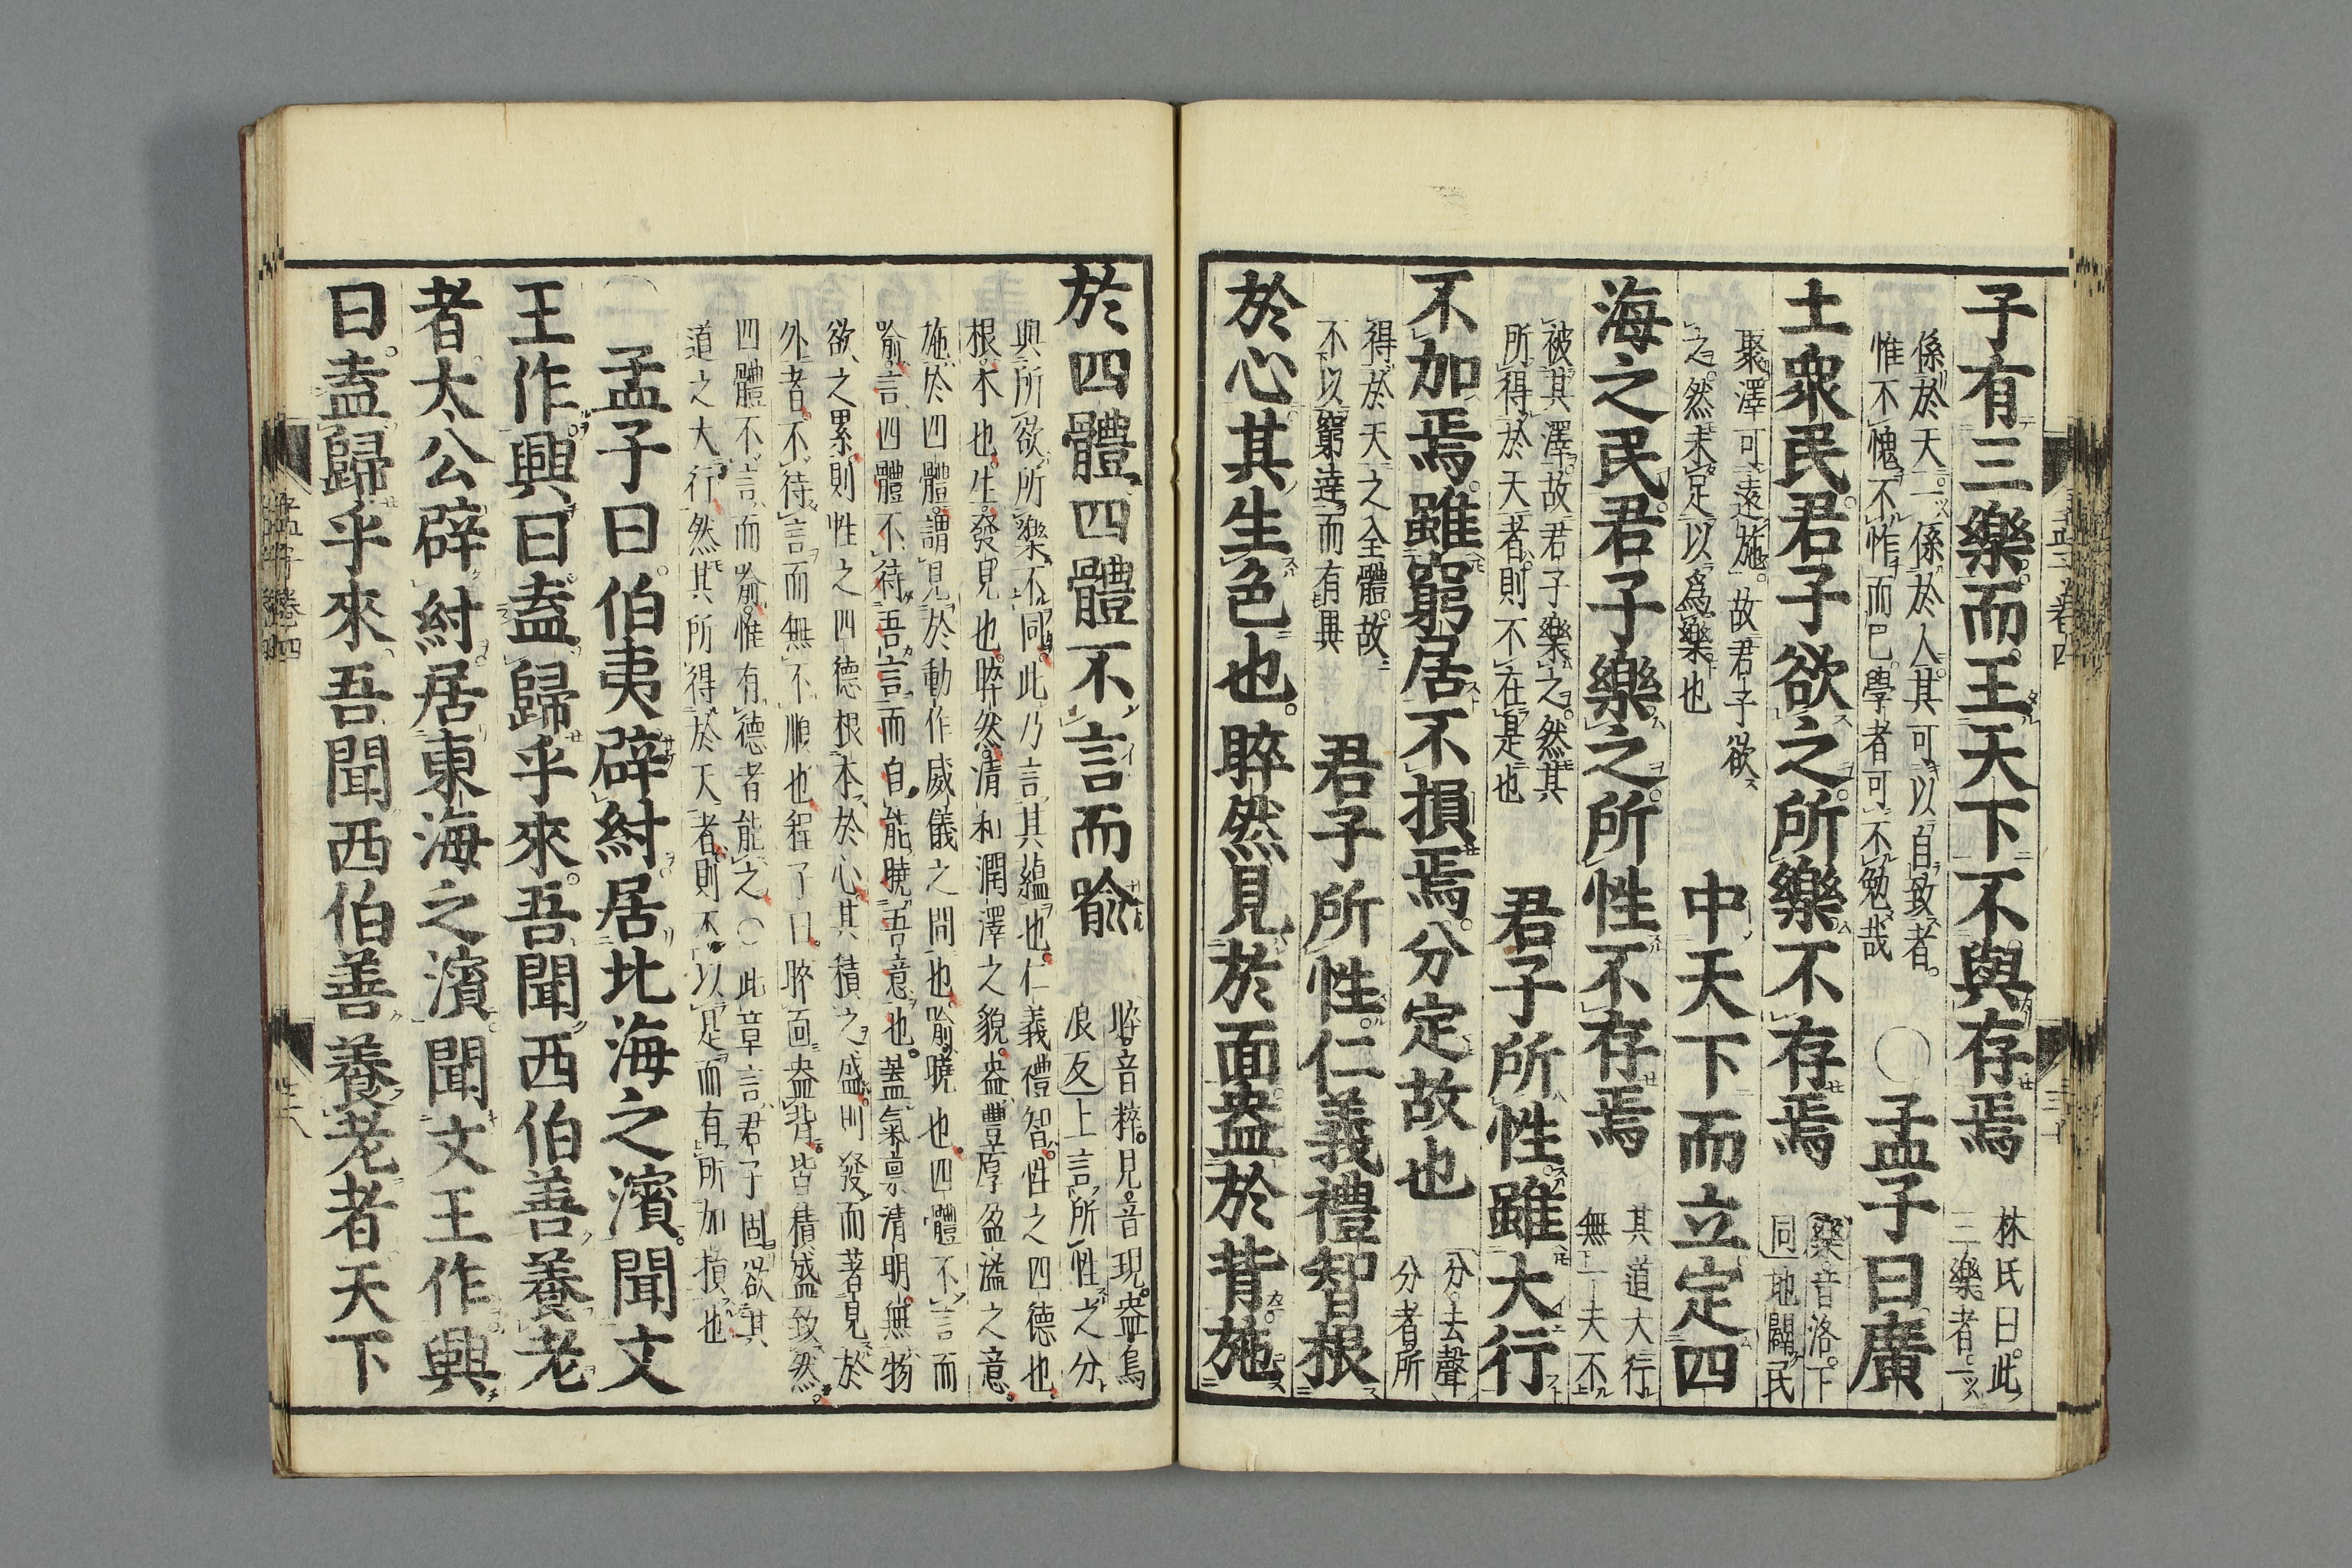 子有三樂而王天下不與存焉 林氏曰此
三樂者一
係於天一係於人其可以自致者
惟不愧不怍而已學者可不勉哉 ○孟子曰廣
土衆民君子欲之所樂不存焉 樂音洛下
同地闢民
聚澤可遠施故君子欲
之然未足以爲樂也 中天下而立定四
海之民君子樂之所性不存焉 其道大行
無一夫不
被其澤故君子樂之然其
所得於天者則不在是也 君子所性雖大行
不加焉雖窮居不損焉分定故也 分去聲
分者所
得於天之全體故
不以窮達而有異 君子所性仁義禮智根
於心其生色也睟然見於面盎於背施
於四體四體不言而喩 睟音粹見音現盎烏
浪反上言所性之分
與所欲所樂不同此乃言其蘊也仁義禮智性之四德也
根本也生發見也睟然清和潤澤之貌盎豐厚盈溢之意
施於四體謂見於動作威儀之間也喩曉也四體不言而
喩言四體不待吾言而自能曉吾意也蓋氣禀清明無物
欲之累則性之四德根本於心其積之盛則發而著見於
外者不待言而無不順也程子曰睟面盎背皆積盛致然
四體不言而喩惟有德者能之○此章言君子固欲其
道之大行然其所得於天者則不以是而有所加損也
孟子曰伯夷辟紂居北海之濱聞文
王作興曰盍歸乎來吾聞西伯善養老
者大公辟紂居東海之濱聞文王作興
曰盍歸乎來吾聞西伯善養老者天下
孟子卷四